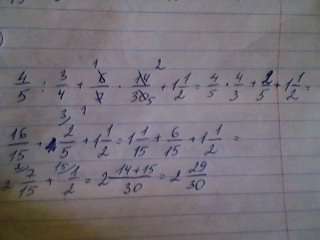 4/5 : 3/4 + 6/7 · 14/30 + 1 1/2 = 4/5 · 4/3 + 2/5 + 1 1/2 =
16/15 + 2/5 + 1 1/2 = 1 1/15 + 6/15 + 1 1/2 =
2 7/15 + 1/2 = 2 14+15/30 = 2 29/30